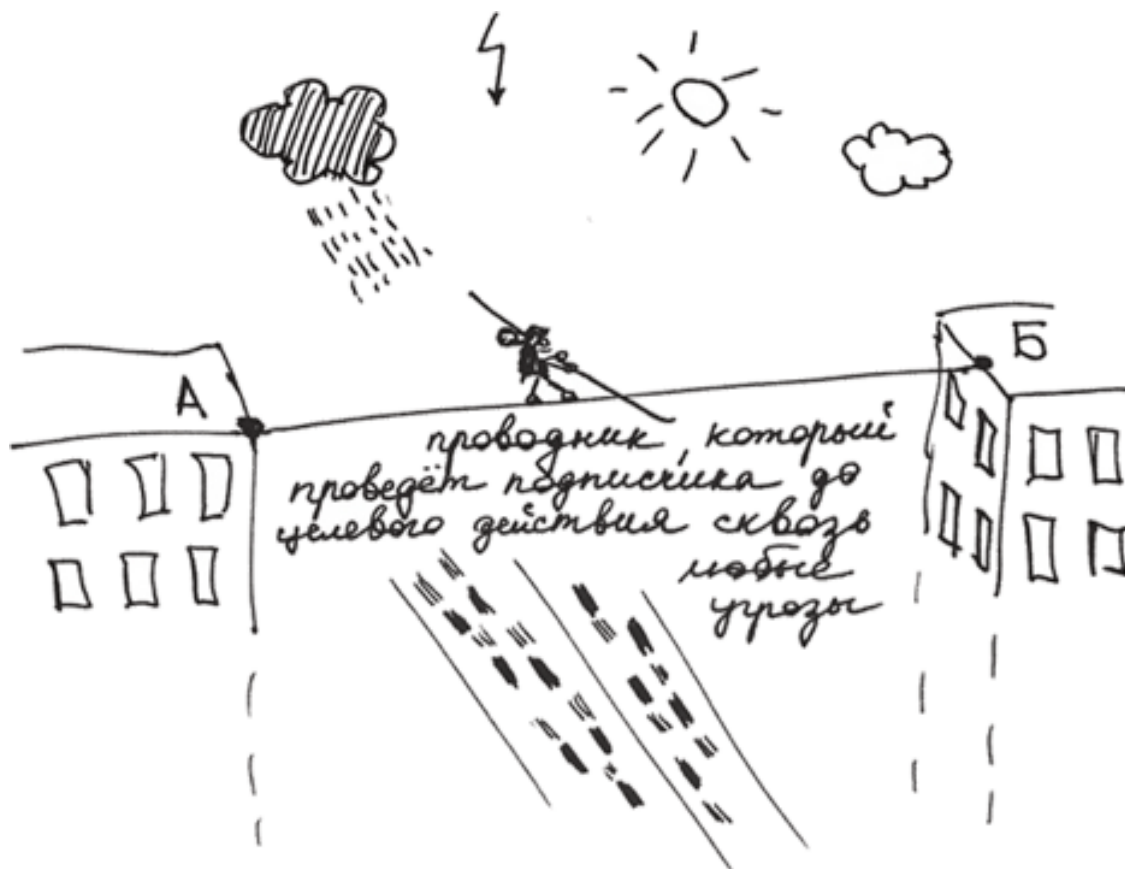 А
Б
проводник, который
проведёт подписчика до
целевого действия сквозь
любые
угрозы